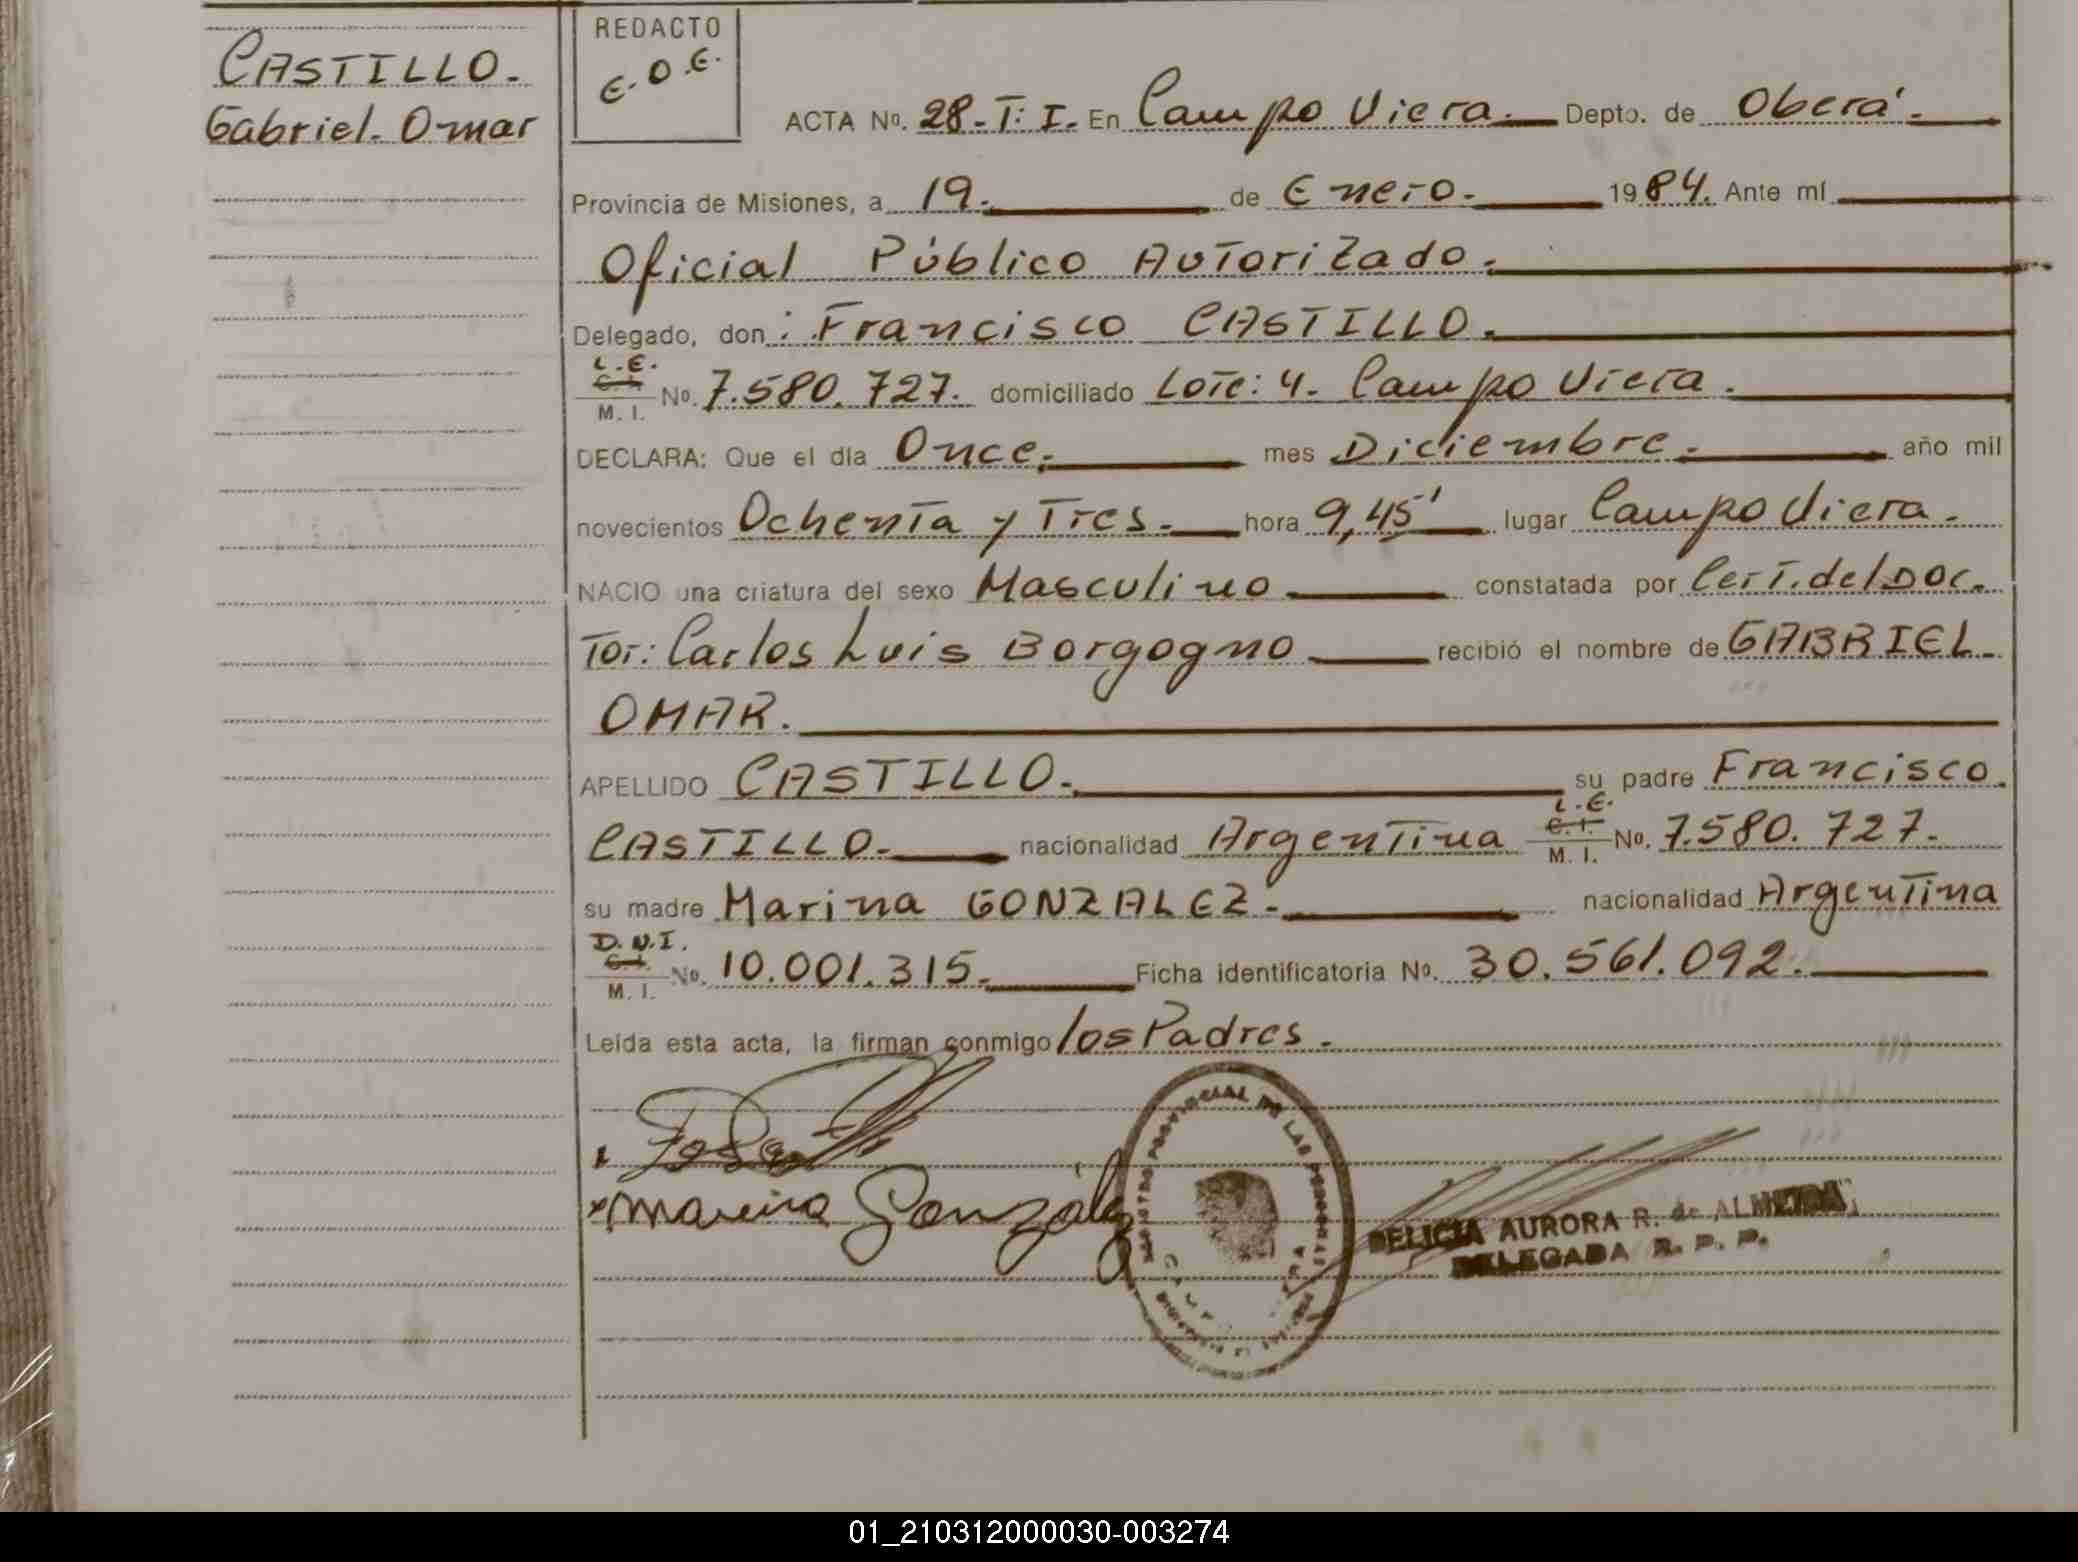 CASTILLO.
Gabriel. Omar
REDACTO
E.O.E.
ACTA Nº. 28-T: I. En Campo Viera. Depto. de Oberá.
Provincia de Misiones, a 19. de Enero. 1984. Ante mí
Oficial Público Autorizado.
Delegado, don: Francisco CASTILLO.
L.E.
C.I.
M. I.
Nº. 7.580.727. domiciliado Lote: 4. Campo Viera.
DECLARA: Que el día Once. mes Diciembre. año mil
novecientos Ochenta y Tres. hora 9,45' lugar Campo Viera.
NACIO una criatura del sexo Masculino constatada por Cert. del Doc.
Tor: Carlos Luis Borgogno recibió el nombre de GABRIEL
OMAR.
APELLIDO CASTILLO. su padre Francisco.
L.E.
CASTILLO. nacionalidad Argentina C.I. Nº. 7.580.727.
M. I.
su madre Marina GONZALEZ. nacionalidad Argentina
D.N.I.
C.I.
M. I.
Nº. 10.001.315. Ficha identificatoria Nº. 30.561.092.
Leída esta acta, la firman conmigo los Padres.
Mareina Gonzalez
REGISTRO PROVINCIAL DE LAS PERSONAS
DELICIA AURORA R. de ALMEIDA
DELEGADA R. P. P.
01_210312000030-003274